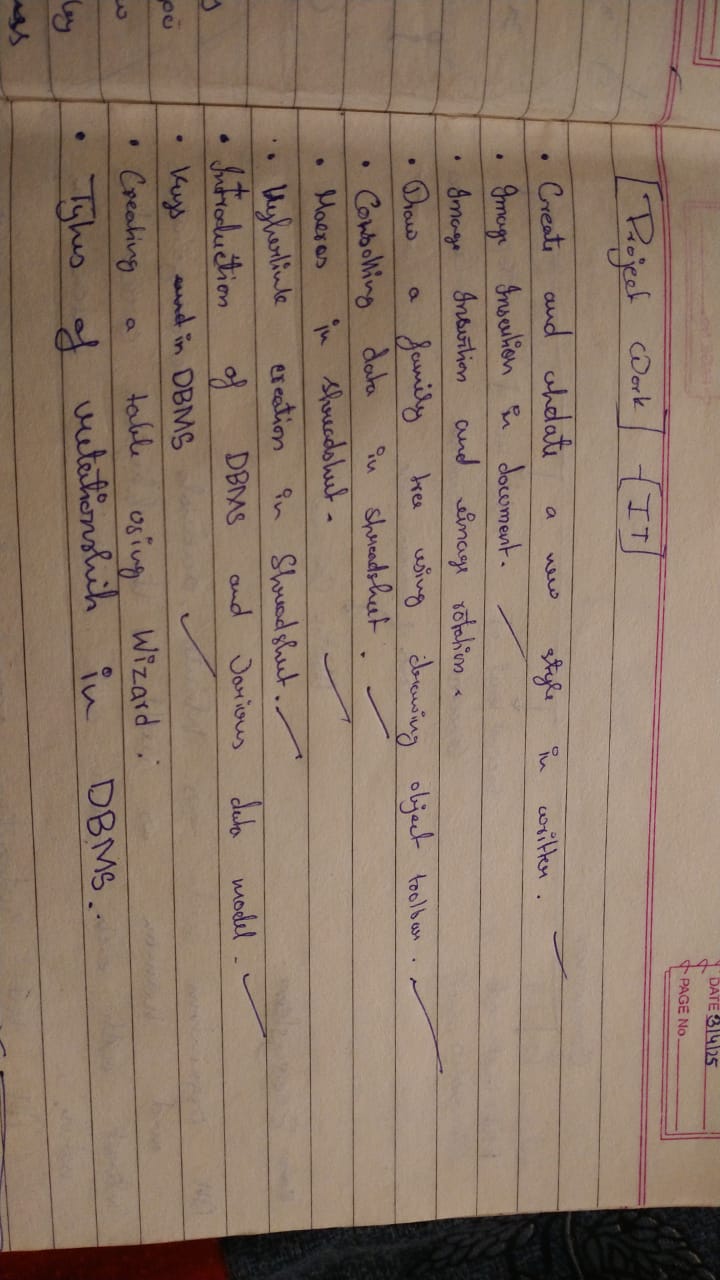 DATE 3/4/25
PAGE No
[Project Work] - [IT]
• Create and update a new style in written.
• Image Insertion in document.
• Image Insertion and image rotation.
• Draw a family tree using drawing object toolbar.
• Consolting data in spreadsheet.
• Macros in spreadsheet.
• Hyperlink creation in Spreadsheet.
• Introduction of DBMS and Various data model.
• Keys in DBMS
• Creating a table using Wizard.
• Types of relationship in DBMS.